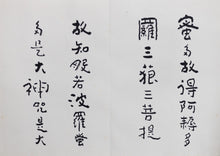 蜜多故得阿耨多
羅三藐三菩提
故知般若波羅蜜
多是大神咒是大